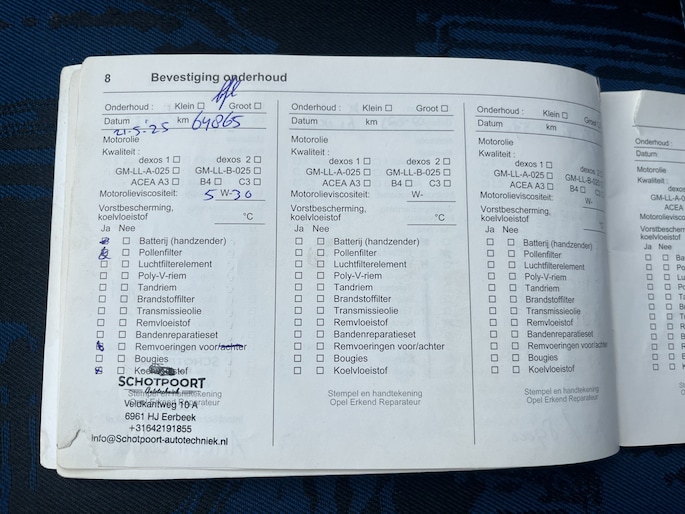 8 Bevestiging onderhoud
Onderhoud : Klein ☐ Groot ☐
Datum km 64865
21-5-'25
Motorolie
Kwaliteit :
dexos 1 ☐ dexos 2 ☐
GM-LL-A-025 ☐ GM-LL-B-025 ☐
ACEA A3 ☐ B4 ☐ C3 ☐
Motorolieviscositeit: 5 W-30
Vorstbescherming,
koelvloeistof °C
Ja Nee
Batterij (handzender)
Pollenfilter
Luchtfilterelement
Poly-V-riem
Tandriem
Brandstoffilter
Transmissieolie
Remvloeistof
Bandenreparatieset
Remvoeringen voor/achter
Bougies
Koelvloeistof
SCHOTPOORT
Autotechniek
Stempel en handtekening
Opel Erkend Reparateur
Veldkantweg 10 A
6961 HJ Eerbeek
+31642191855
info@Schotpoort-autotechniek.nl
Onderhoud : Klein ☐ Groot ☐
Datum km
Motorolie
Kwaliteit :
dexos 1 ☐ dexos 2 ☐
GM-LL-A-025 ☐ GM-LL-B-025 ☐
ACEA A3 ☐ B4 ☐ C3 ☐
Motorolieviscositeit: W-
Vorstbescherming,
koelvloeistof °C
Ja Nee
Batterij (handzender)
Pollenfilter
Luchtfilterelement
Poly-V-riem
Tandriem
Brandstoffilter
Transmissieolie
Remvloeistof
Bandenreparatieset
Remvoeringen voor/achter
Bougies
Koelvloeistof
Stempel en handtekening
Opel Erkend Reparateur
Onderhoud : Klein ☐ Groot ☐
Datum km
Motorolie
Kwaliteit :
dexos 1 ☐ dexos 2
GM-LL-A-025 ☐ GM-LL-B-025
ACEA A3 ☐ B4 ☐ C3
Motorolieviscositeit: W-
Vorstbescherming,
koelvloeistof °C
Ja Nee
Batterij (handzender)
Pollenfilter
Luchtfilterelement
Poly-V-riem
Tandriem
Brandstoffilter
Transmissieolie
Remvloeistof
Bandenreparatieset
Remvoeringen voor/achter
Bougies
Koelvloeistof
Stempel en handtekening
Opel Erkend Reparateur
Onderhoud :
Datum
Motorolie
Kwaliteit :
GM-LL-A-02
ACEA A
Motorolieviscosite
Vorstbescherm
koelvloeistof
Ja Nee